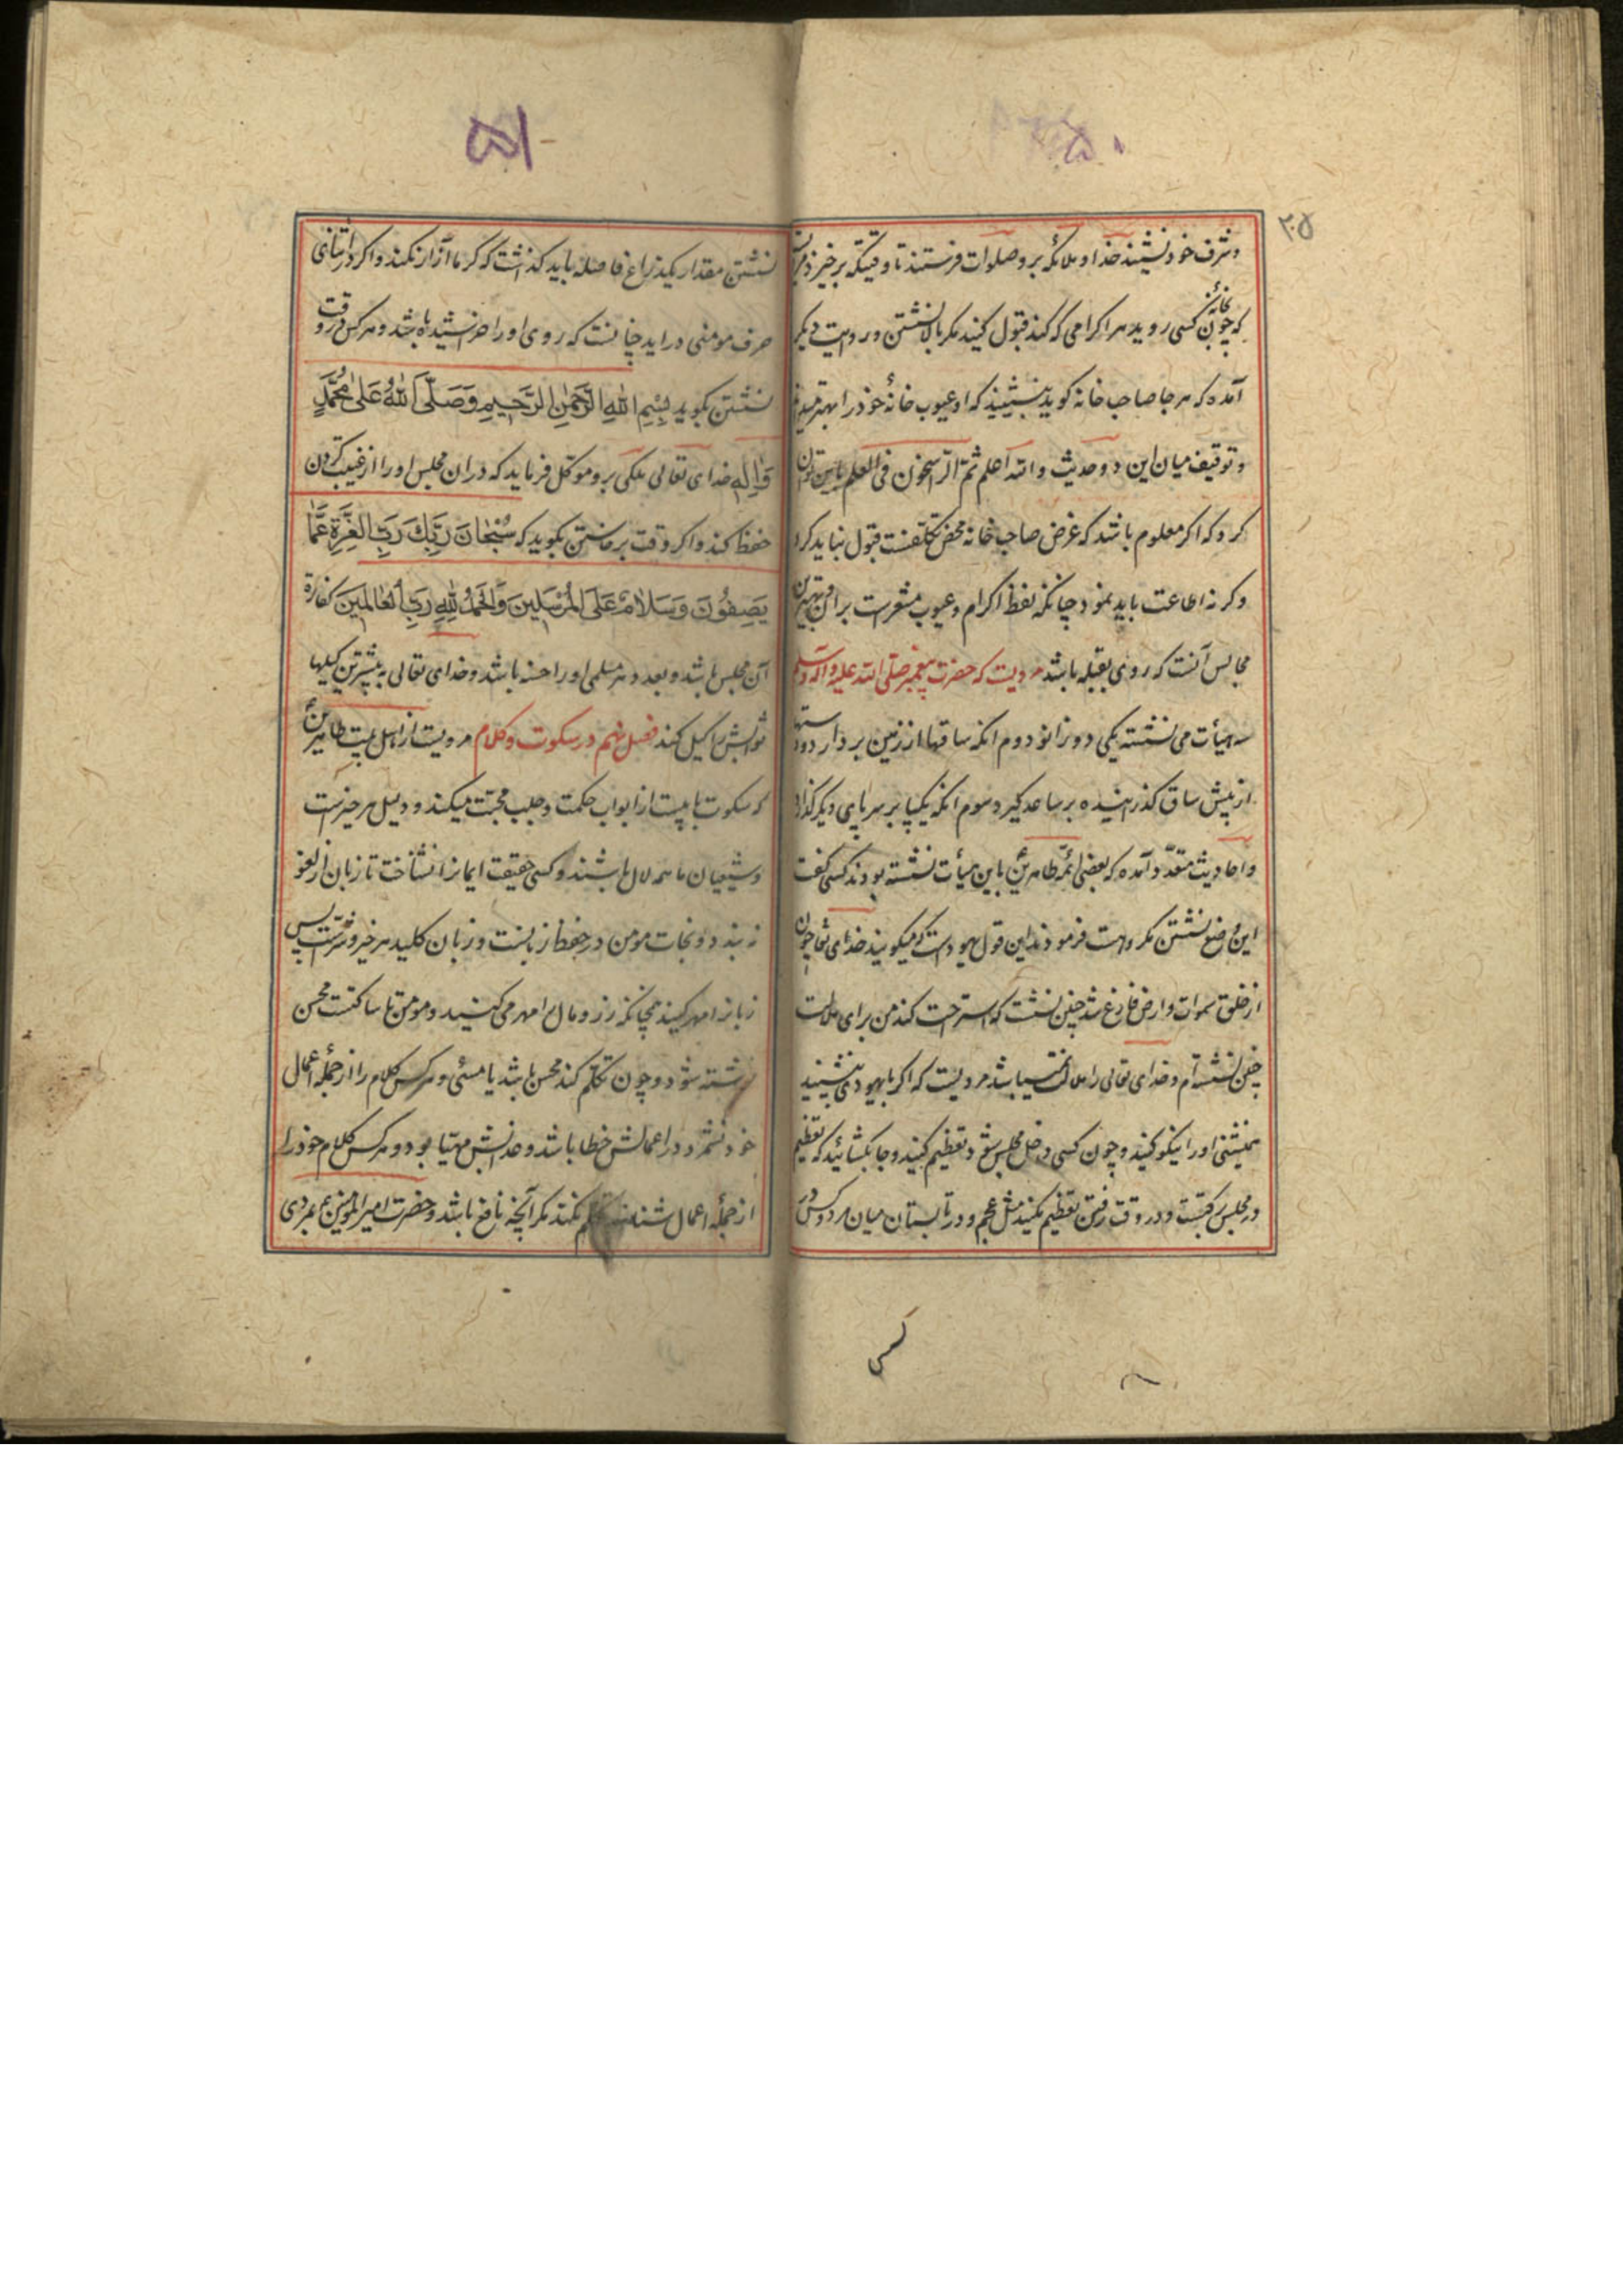 ۵۰
۲۰۵
و شرف خود نشیند خدا و ملائکه برو صلوات فرستند تا وقتیکه برخیزد
که چون بخانهٔ کسی روید هر اکرامی که کند قبول کنید مگر بالا نشستن و روایت دیگر
آمده که هر جا صاحب خانه گوید بنشینید که او عیوب خانهٔ خود را بهتر میداند
و توقیف میان این دو حدیث والله اعلم ثم الراسخون فی العلم باین توان
کرد که اگر معلوم باشد که غرض صاحب خانه محض تکلفست قبول نباید کرد
وگرنه اطاعت باید نمود چنانکه لفظ اکرام و عیوب مشعرست بران و بهترین
مجالس آنست که روی بقبله باشد مرویست که حضرت پیغمبر صلی الله علیه و آله وسلم
سه هیأت می نشسته یکی دو زانو دوم انکه ساقها از زمین بردارد و دستها
از پیش ساق گذرانیده بر ساعد گیرد سوم انکه یکپا بر سر پای دیگر گذارد
و احادیث متعدد آمده که بعضی ائمه طاهرین باین هیأت نشسته بودند کسی گفت
این وضع نشستن مکروهست فرمودند این قول یهودست که میگویند خدای تعالی چون
از خلق سموات و ارض فارغ شد چنین نشست که استراحت کند من برای ملالت
چنین نشسته ام و خدای تعالی را ملالت نمیباشد مرویست که اگر با یهودی بنشینید
همنشینی او را نیکو کنید و چون کسی داخل مجلس شود تعظیم کنید و جا بگشائید که تعظیم
در مجلس رکنیست و در وقت رفتن تعظیم نکنید مثل عجم و در تابستان میان هر دو کس در
کسی
۵۱
نشستن مقدار یکذراع فاصله باید گذاشت که گرما آزار نکند و اگر در اثنای
حرف مومنی دراید چنانست که روی او را خراشیده باشد و هر کس در وقت
نشستن بگوید بِسْمِ اللهِ الرَّحْمٰنِ الرَّحِیمِ وَصَلَّی اللهُ عَلیٰ مُحَمَّدٍ
وَآلِهِ خدای تعالی ملکی برو موکل فرماید که دران مجلس او را از غیبت کردن
حفظ کند و اگر وقت برخاستن بگوید که سُبْحَانَ رَبِّكَ رَبِّ الْعِزَّةِ عَمَّا
یَصِفُونَ وَسَلَامٌ عَلَی الْمُرْسَلِینَ وَالْحَمْدُ لِلهِ رَبِّ الْعَالَمِینَ کفارهٔ
آن مجلس باشد و بعدد هر مسلمی او را حسنه باشد و خدای تعالی به بیشترین کیلها
ثوابش را کیل کند فصل نهم در سکوت و کلام مرویست از اهل بیت طاهرین
که سکوت بابیست از ابواب حکمت و جلب محبت میکند و دلیل هر خیرست
و شیعیان ما همه لال باشند و کسی حقیقت ایمان را نشناخت تا زبان از لغو
نه بندد و نجات مومن در حفظ زبانست و زبان کلید هر خیر و شرست پس
زبان را مهر کنید همچنانکه زر و مال را مهر می کنید و مومن تا ساکتست محسن
نوشته شود و چون تکلم کند محسن باشد یا مسئی و هر کس کلام را از جملهٔ اعمال
خود نشمرد در اعمالش خطا باشد و عذابش مهیا بود و هر کس کلام خود را
از جملهٔ اعمال شناسد تکلم نکند مگر آنچه نافع باشد و حضرت امیر المومنین ع بمردی